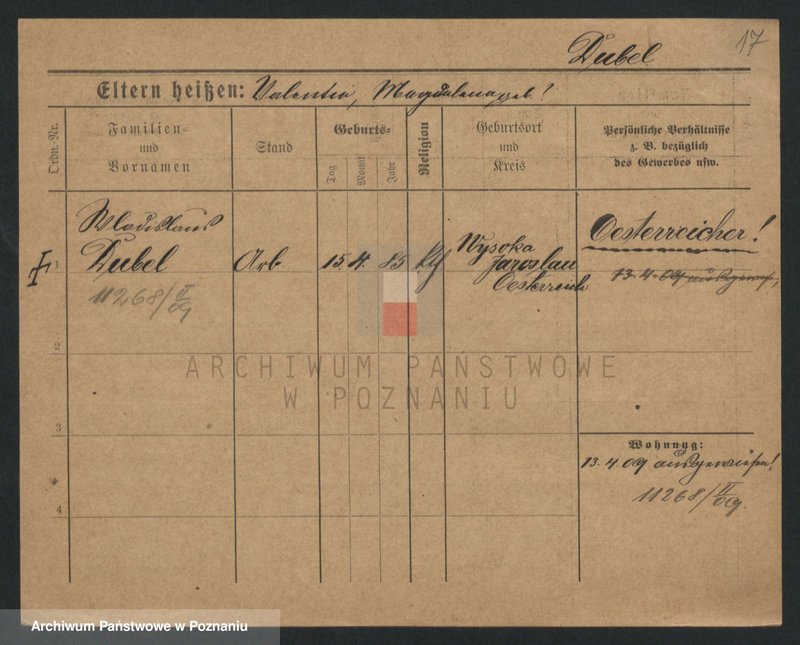 Dubel 17
Eltern heißen: Valentin, Magdalena geb. ?
Ordn. Nr.
Familien-
und
Vornamen
Stand
Geburts-
Tag
Monat
Jahr
Religion
Geburtsort
und
Kreis
Persönliche Verhältnisse
z. B. bezüglich
des Gewerbes usw.
Wladislaus
1 Dubel Arb 15 4. 85 kth
11268/II
09
Wysoka
Jaroslau
Oesterreich
Oesterreicher!
13.4.09 ausgewies,
2
3
4
Wohnung:
13.4.09 ausgewiesen!
11268/II
09.
ARCHIWUM PAŃSTWOWE
W POZNANIU
Archiwum Państwowe w Poznaniu